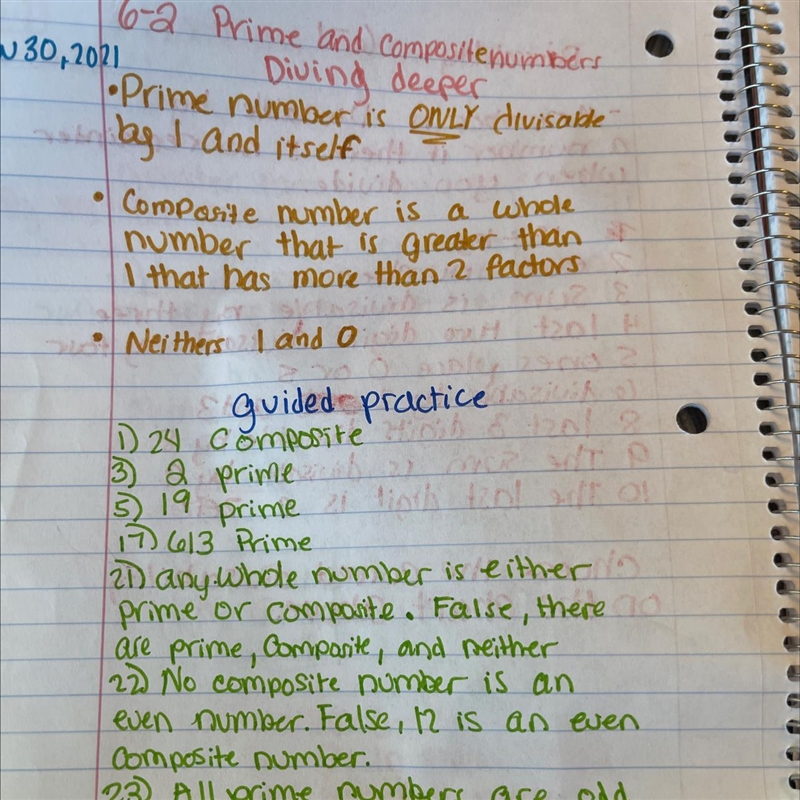 6-2 Prime and Composite numbers
30, 2021
Diving deeper
• Prime number is ONLY divisable
by 1 and itself
• Composite number is a whole
number that is greater than
1 that has more than 2 factors
• Neithers 1 and 0
guided practice
1) 24 Composite
3) 2 prime
5) 19 prime
17) 613 Prime
21) any whole number is either
prime or composite. False, there
are prime, Composite, and neither
22) No composite number is an
even number. False, 12 is an even
Composite number.
23) All prime numbers are odd